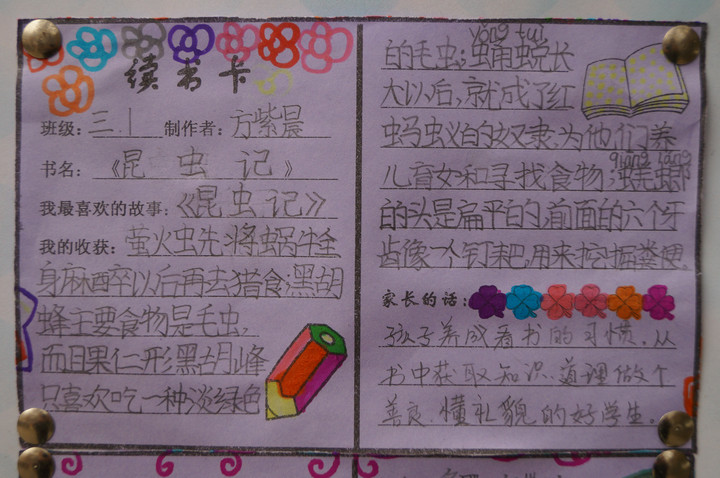 读书卡
班级：三.1 制作者：方紫晨
书名 《昆虫记》
我最喜欢的故事：《昆虫记》
我的收获：萤火虫先将蜗牛全
身麻醉以后再去猎食；黑胡
蜂主要食物是毛虫，
而且果仁形黑胡峰
只喜欢吃一种淡绿色
yǒng tuì
的毛虫；蛹蜕长
大以后，就成了红
蚂蚁的奴隶，为他们养
儿育女和寻找食物；蜣螂
qiāng láng
的头是扁平的，前面的六个牙
齿像一个钉耙，用来挖掘粪便。
家长的话：
孩子养成看书的习惯。从
书中获取知识、道理做个
善良、懂礼貌的好学生。